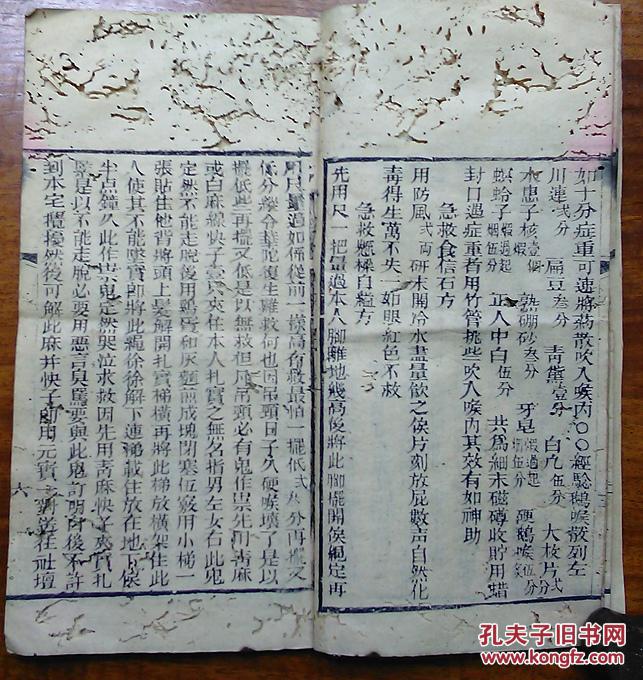 如十分症重可速將葯散吹入喉內〇〇經驗鵝喉散列左
川連弐分 扁豆叁分 青黛壹分 白凢伍分 大枚片弌分
水患子核壹個煅 熟硼砂叁分 牙皂煅過起烟伍分 硬鵝喉伍分
螟蛤子煅過起烟伍分 正人中白伍分 共爲細末磁磚收貯用蜡
封口遇症重者用竹管挑些吹入喉內其效有如神助
急救食信石方
用防風弍両研末開冷水盡量飲之候片刻放屁數声自然化
毒得生萬不失一如眼紅色不救
急救懸樑自縊方
先用尺一把量過本人脚離地幾高後將此脚擺開候繩定再
用尺量過如係從前一樣高有救最怕一擺低弍叁分再擺又
低分縱令華陀復生難救何也因吊頸日子久硬喉壞了是以
擺低些再擺又低是以無救但凡吊頭必有鬼作祟先用青麻
或白麻線快子壹隻夾住本人扎實之無名指男左女右此鬼
定然不能走脫後用鷄膏和灰麵煎成塊閉塞伍竅用小梯一
張貼住他背將頭上髮解開扎實梯橫再將此梯放橫架住此
人使其不能墜實即將此繩徐徐解下連梯載住放在地下候
半点鐘久此作祟鬼定然哭泣求救因先用青麻快子夾實扎
緊是以不能走脫必要用惡言與罵要與此鬼許明日後不許
到本宅擾然後可解此麻并快子即用元寶 對送在社壇
六
孔夫子旧书网
www.kongfz.com